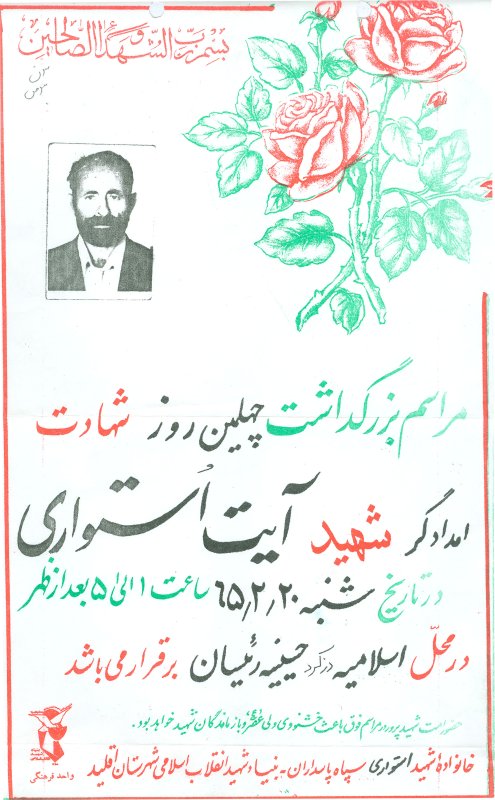 بسم رب الشهداء و الصالحین
مراسم بزرگداشت چهلمین روز شهادت
امدادگر شهید آیت اُستواری
در تاریخ شنبه ۶۵٫۲٫۲۰ ساعت ۱ الی ۵ بعد از ظهر
در محلّ اسلامیه دزکرد حسینیه رئیسان برقرار می باشد
حضور امت شهید پرور در مراسم فوق باعث خشنودی ولی عصر و بازماندگان شهید خواهد بود.
خانواده شهید استواری سپاه پاسداران - بنیاد شهید انقلاب اسلامی شهرستان اقلید
واحد فرهنگی